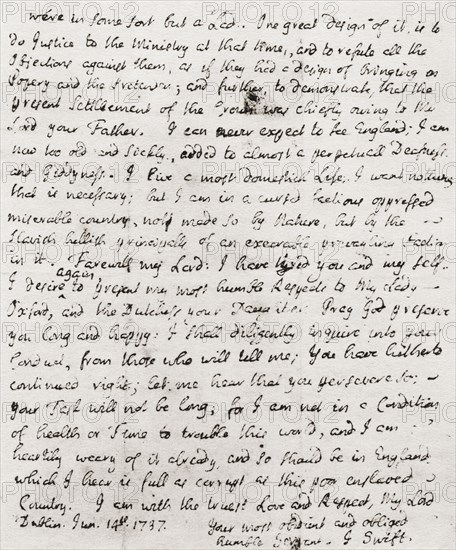 were in some sort but a Lad. One great design of it, is to
do Justice to the Ministry at that time, and to refute all the
Objections against them, as if they had a design of bringing in
Popery and the Pretender; and further to demonstrate, that the
present Settlement of the Crown was chiefly owing to the
Lord your Father. I can never expect to see England; I am
now too old and sickly, added to almost a perpetuall Deafness
and Giddyness. I live a most domestick Life; I want nothing
that is necessary; but I am in a cursed factious oppressed
miserable country, not made so by Nature, but by the
slavish hellish principals of an execrable prevailing Faction
in it. Farewell my Lord: I have tyred you and my self.
again,
I desire to present my most humble Respects to My Lady
Oxford, and the Dutchess your Daughter. Pray God preserve
you long and happy: I shall diligently inquire into your
Conduct, from those who will tell me; you have hitherto
continued right; let me hear that you persevere so;
your Task will not be long, for I am not in a Condition
of health or Time to trouble this world, and I am
heartily weary of it already, and so should be in England
which I hear is full as corrupt as this poor enslaved
Country. I am with the truest Love and Respect, My Lord
Dublin. Jun. 14th. 1737. Your most obedient and obliged
humble Servant. J Swift.
PHOTO12